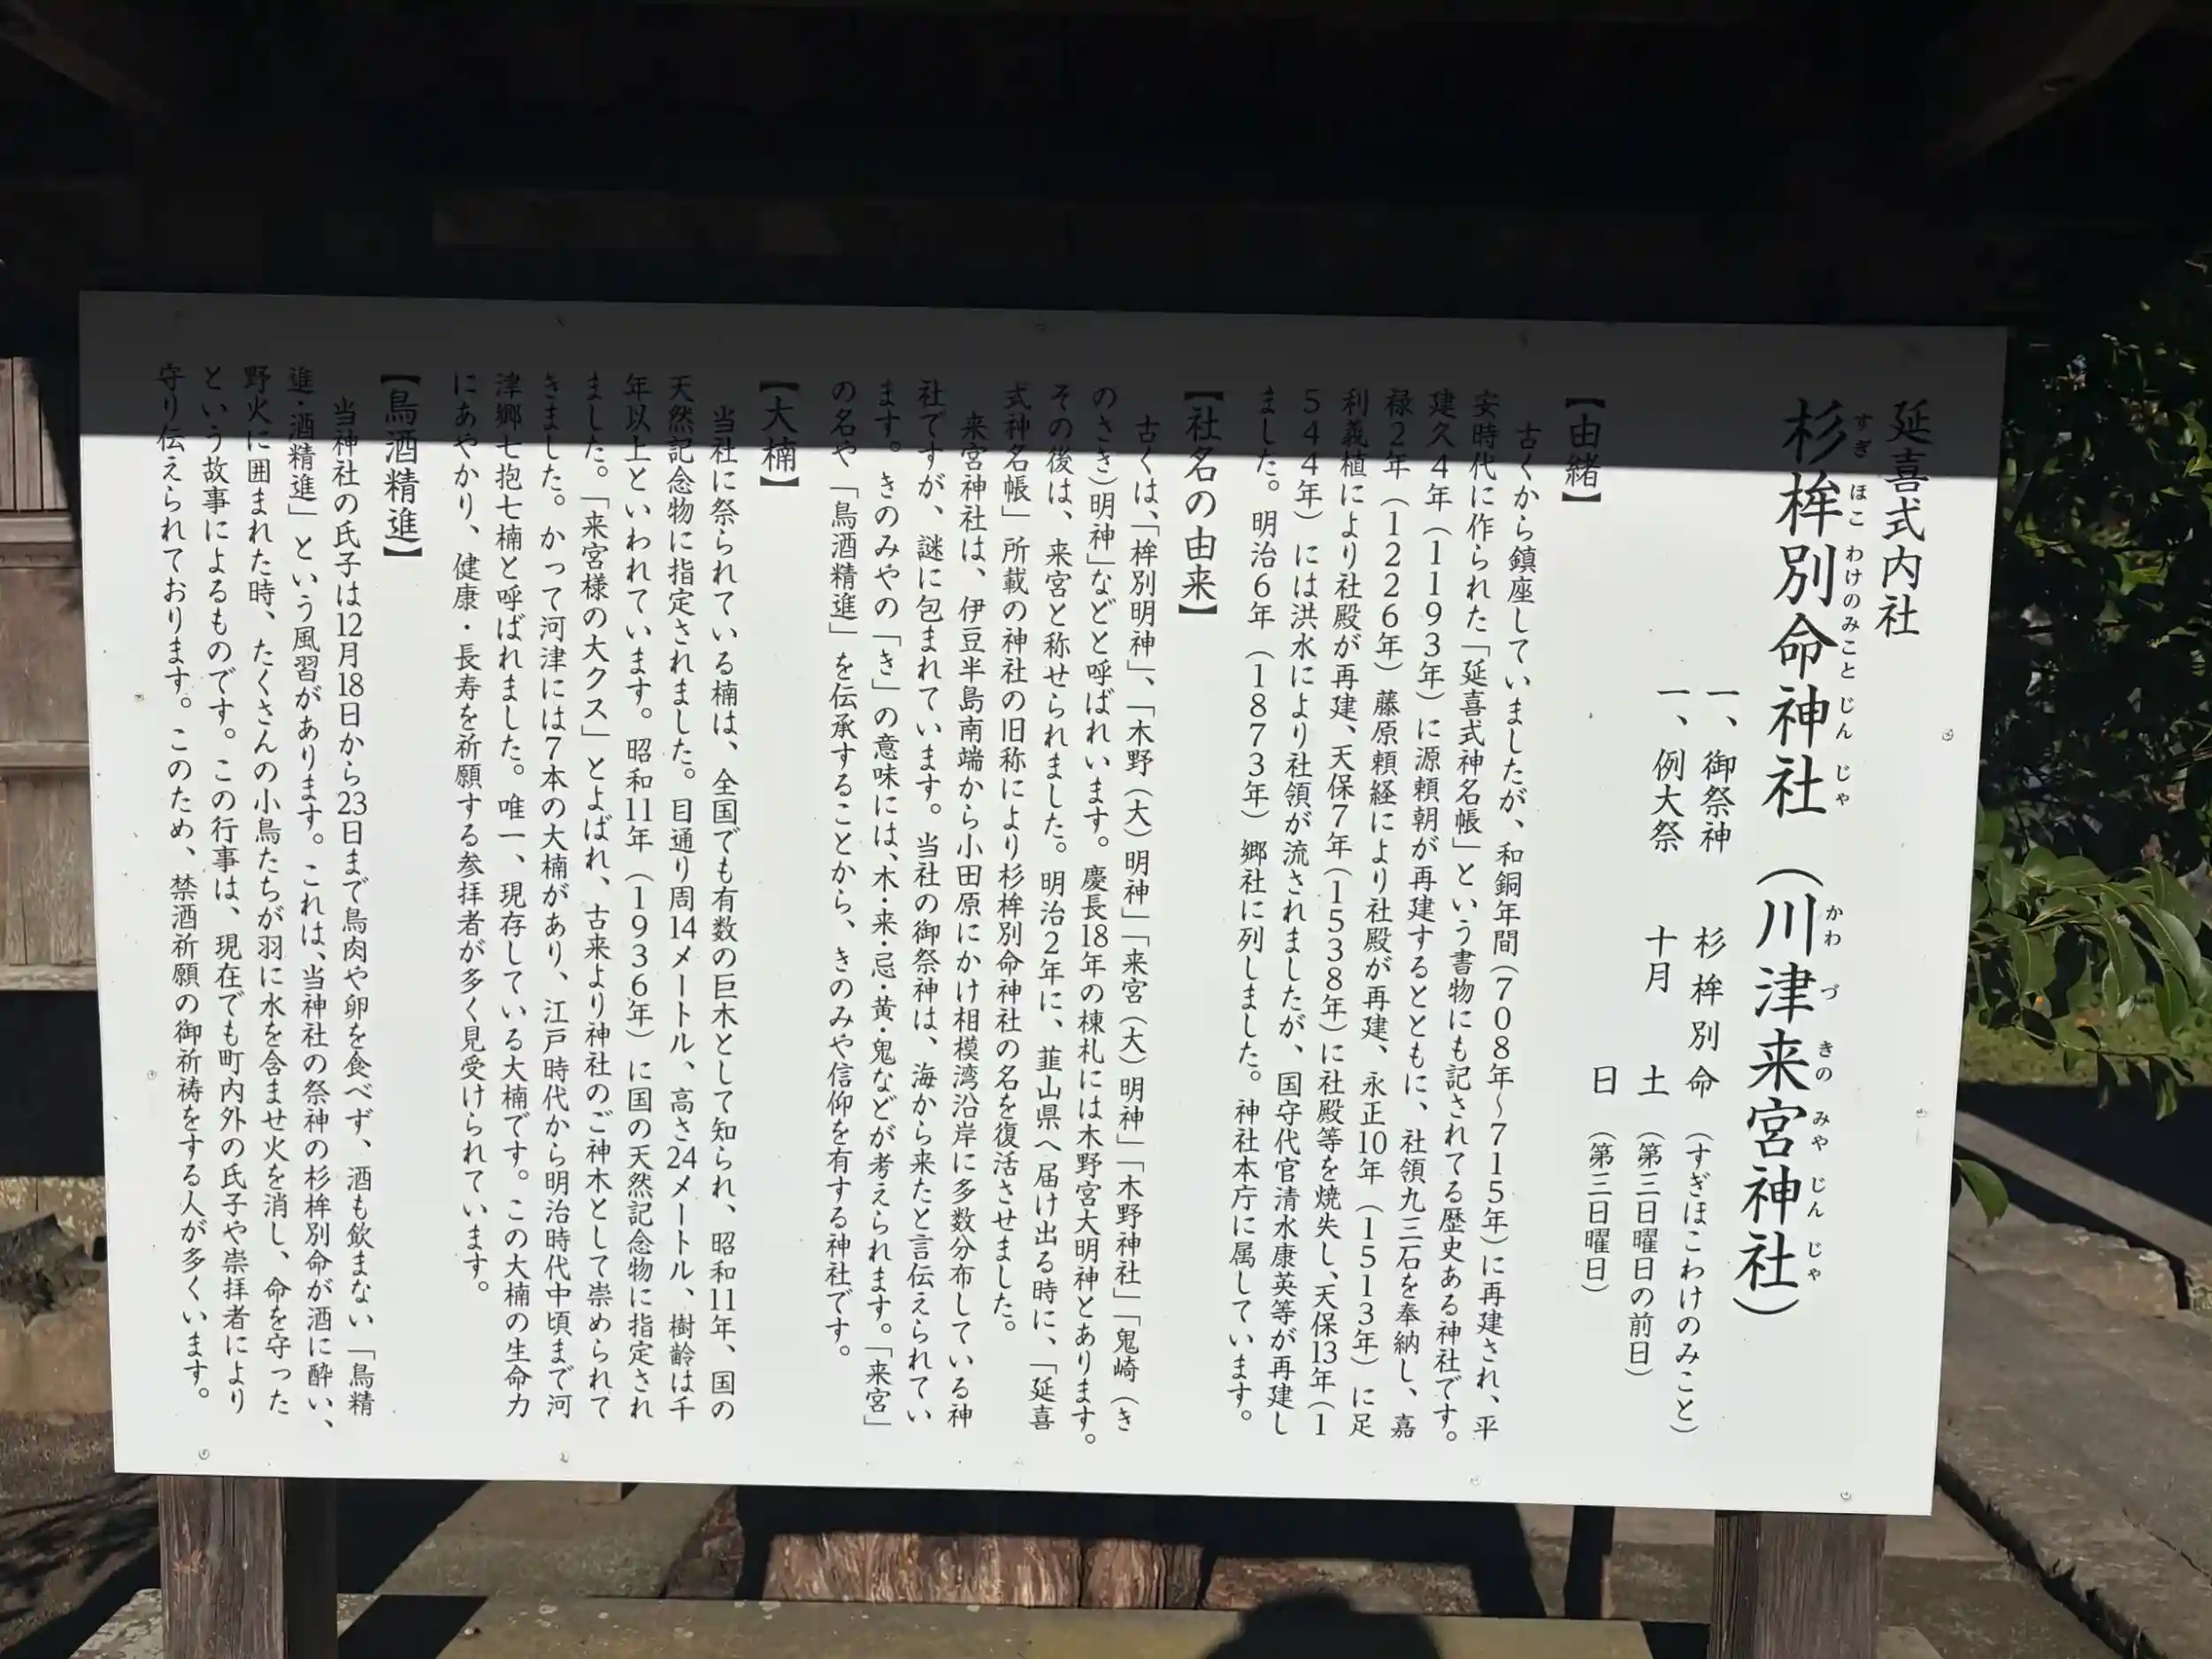 延喜式内社
杉桙別命神社（川津来宮神社）
すぎ ほこ わけのみこと じん じゃ かわ づ きの みや じん じゃ
一、御祭神 杉桙別命（すぎほこわけのみこと）
一、例大祭 十月 土（第三日曜日の前日）
日（第三日曜日）
【由緒】
古くから鎮座していましたが、和銅年間（708年〜715年）に再建され、平
安時代に作られた「延喜式神名帳」という書物にも記されてる歴史ある神社です。
建久4年（1193年）に源頼朝が再建するとともに、社領九三石を奉納し、嘉
禄2年（1226年）藤原頼経により社殿が再建、永正10年（1513年）に足
利義植により社殿が再建、天保7年（1538年）に社殿等を焼失し、天保13年（1
544年）には洪水により社領が流されましたが、国守代官清水康英等が再建し
ました。明治6年（1873年）郷社に列しました。神社本庁に属しています。
【社名の由来】
古くは、「桙別明神」、「木野（大）明神」「来宮（大）明神」「木野神社」「鬼崎（き
のさき）明神」などと呼ばれいます。慶長18年の棟札には木野宮大明神とあります。
その後は、来宮と称せられました。明治2年に、韮山県へ届け出る時に、「延喜
式神名帳」所載の神社の旧称により杉桙別命神社の名を復活させました。
来宮神社は、伊豆半島南端から小田原にかけ相模湾沿岸に多数分布している神
社ですが、謎に包まれています。当社の御祭神は、海から来たと言伝えられてい
ます。きのみやの「き」の意味には、木・来・忌・黄・鬼などが考えられます。「来宮」
の名や「鳥酒精進」を伝承することから、きのみや信仰を有する神社です。
【大楠】
当社に祭られている楠は、全国でも有数の巨木として知られ、昭和11年、国の
天然記念物に指定されました。目通り周14メートル、高さ24メートル、樹齢は千
年以上といわれています。昭和11年（1936年）に国の天然記念物に指定され
ました。「来宮様の大クス」とよばれ、古来より神社のご神木として崇められて
きました。かって河津には7本の大楠があり、江戸時代から明治時代中頃まで河
津郷七抱七楠と呼ばれました。唯一、現存している大楠です。この大楠の生命力
にあやかり、健康・長寿を祈願する参拝者が多く見受けられています。
【鳥酒精進】
当神社の氏子は12月18日から23日まで鳥肉や卵を食べず、酒も飲まない「鳥精
進・酒精進」という風習があります。これは、当神社の祭神の杉桙別命が酒に酔い、
野火に囲まれた時、たくさんの小鳥たちが羽に水を含ませ火を消し、命を守った
という故事によるものです。この行事は、現在でも町内外の氏子や崇拝者により
守り伝えられております。このため、禁酒祈願の御祈祷をする人が多くいます。